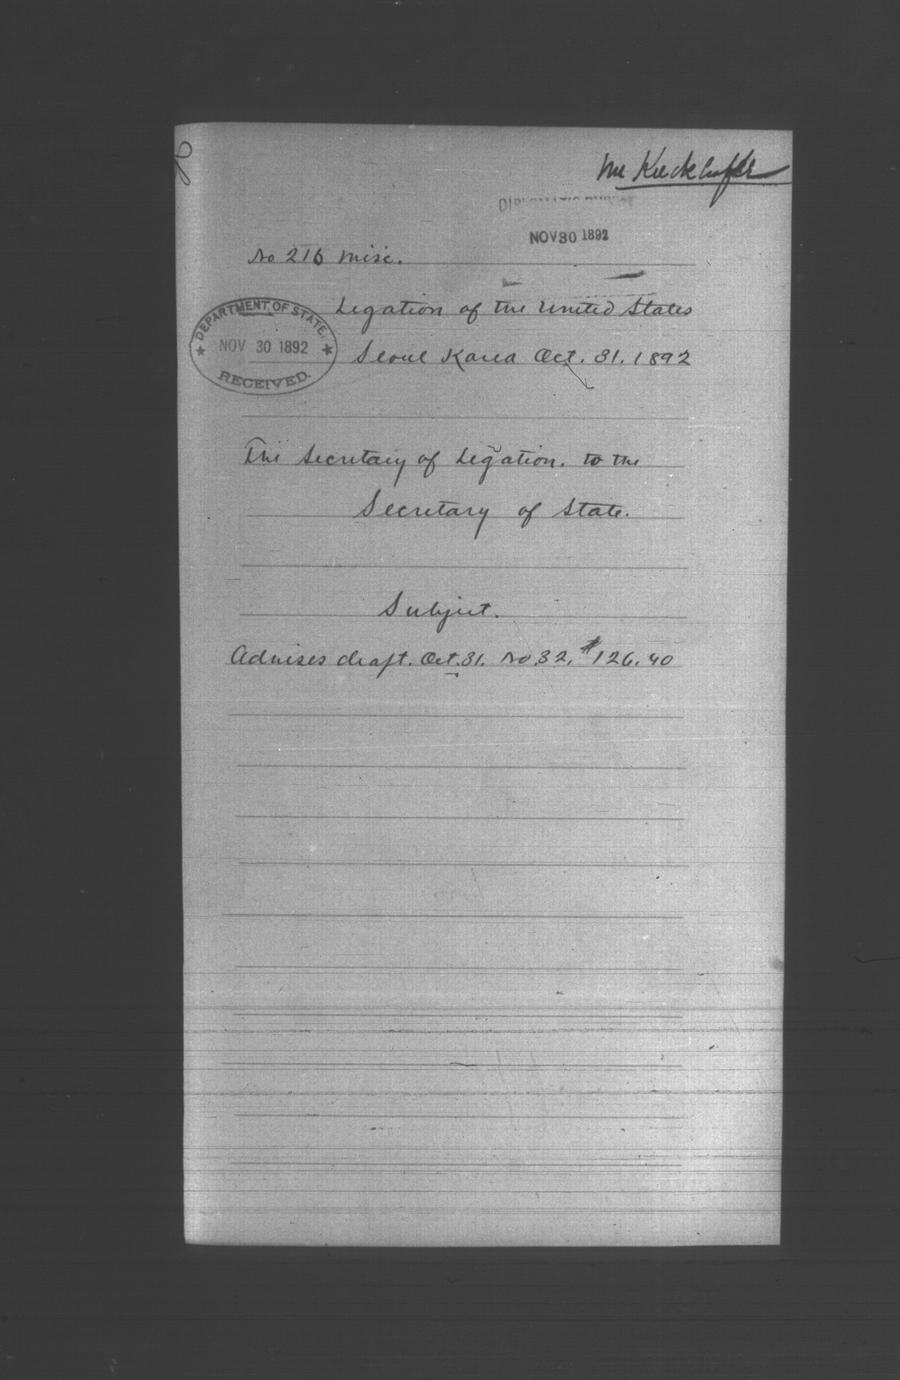 Mr Kieckhoefer
NOV 30 1892
No 216 Misc.
Legation of the United States
DEPARTMENT OF STATE.
NOV 30 1892
RECEIVED.
Seoul Korea Oct. 31. 1892
The Secretary of Legation. to the
Secretary of State.
Subject.
Advises draft. Oct. 31. No 32, $126.40